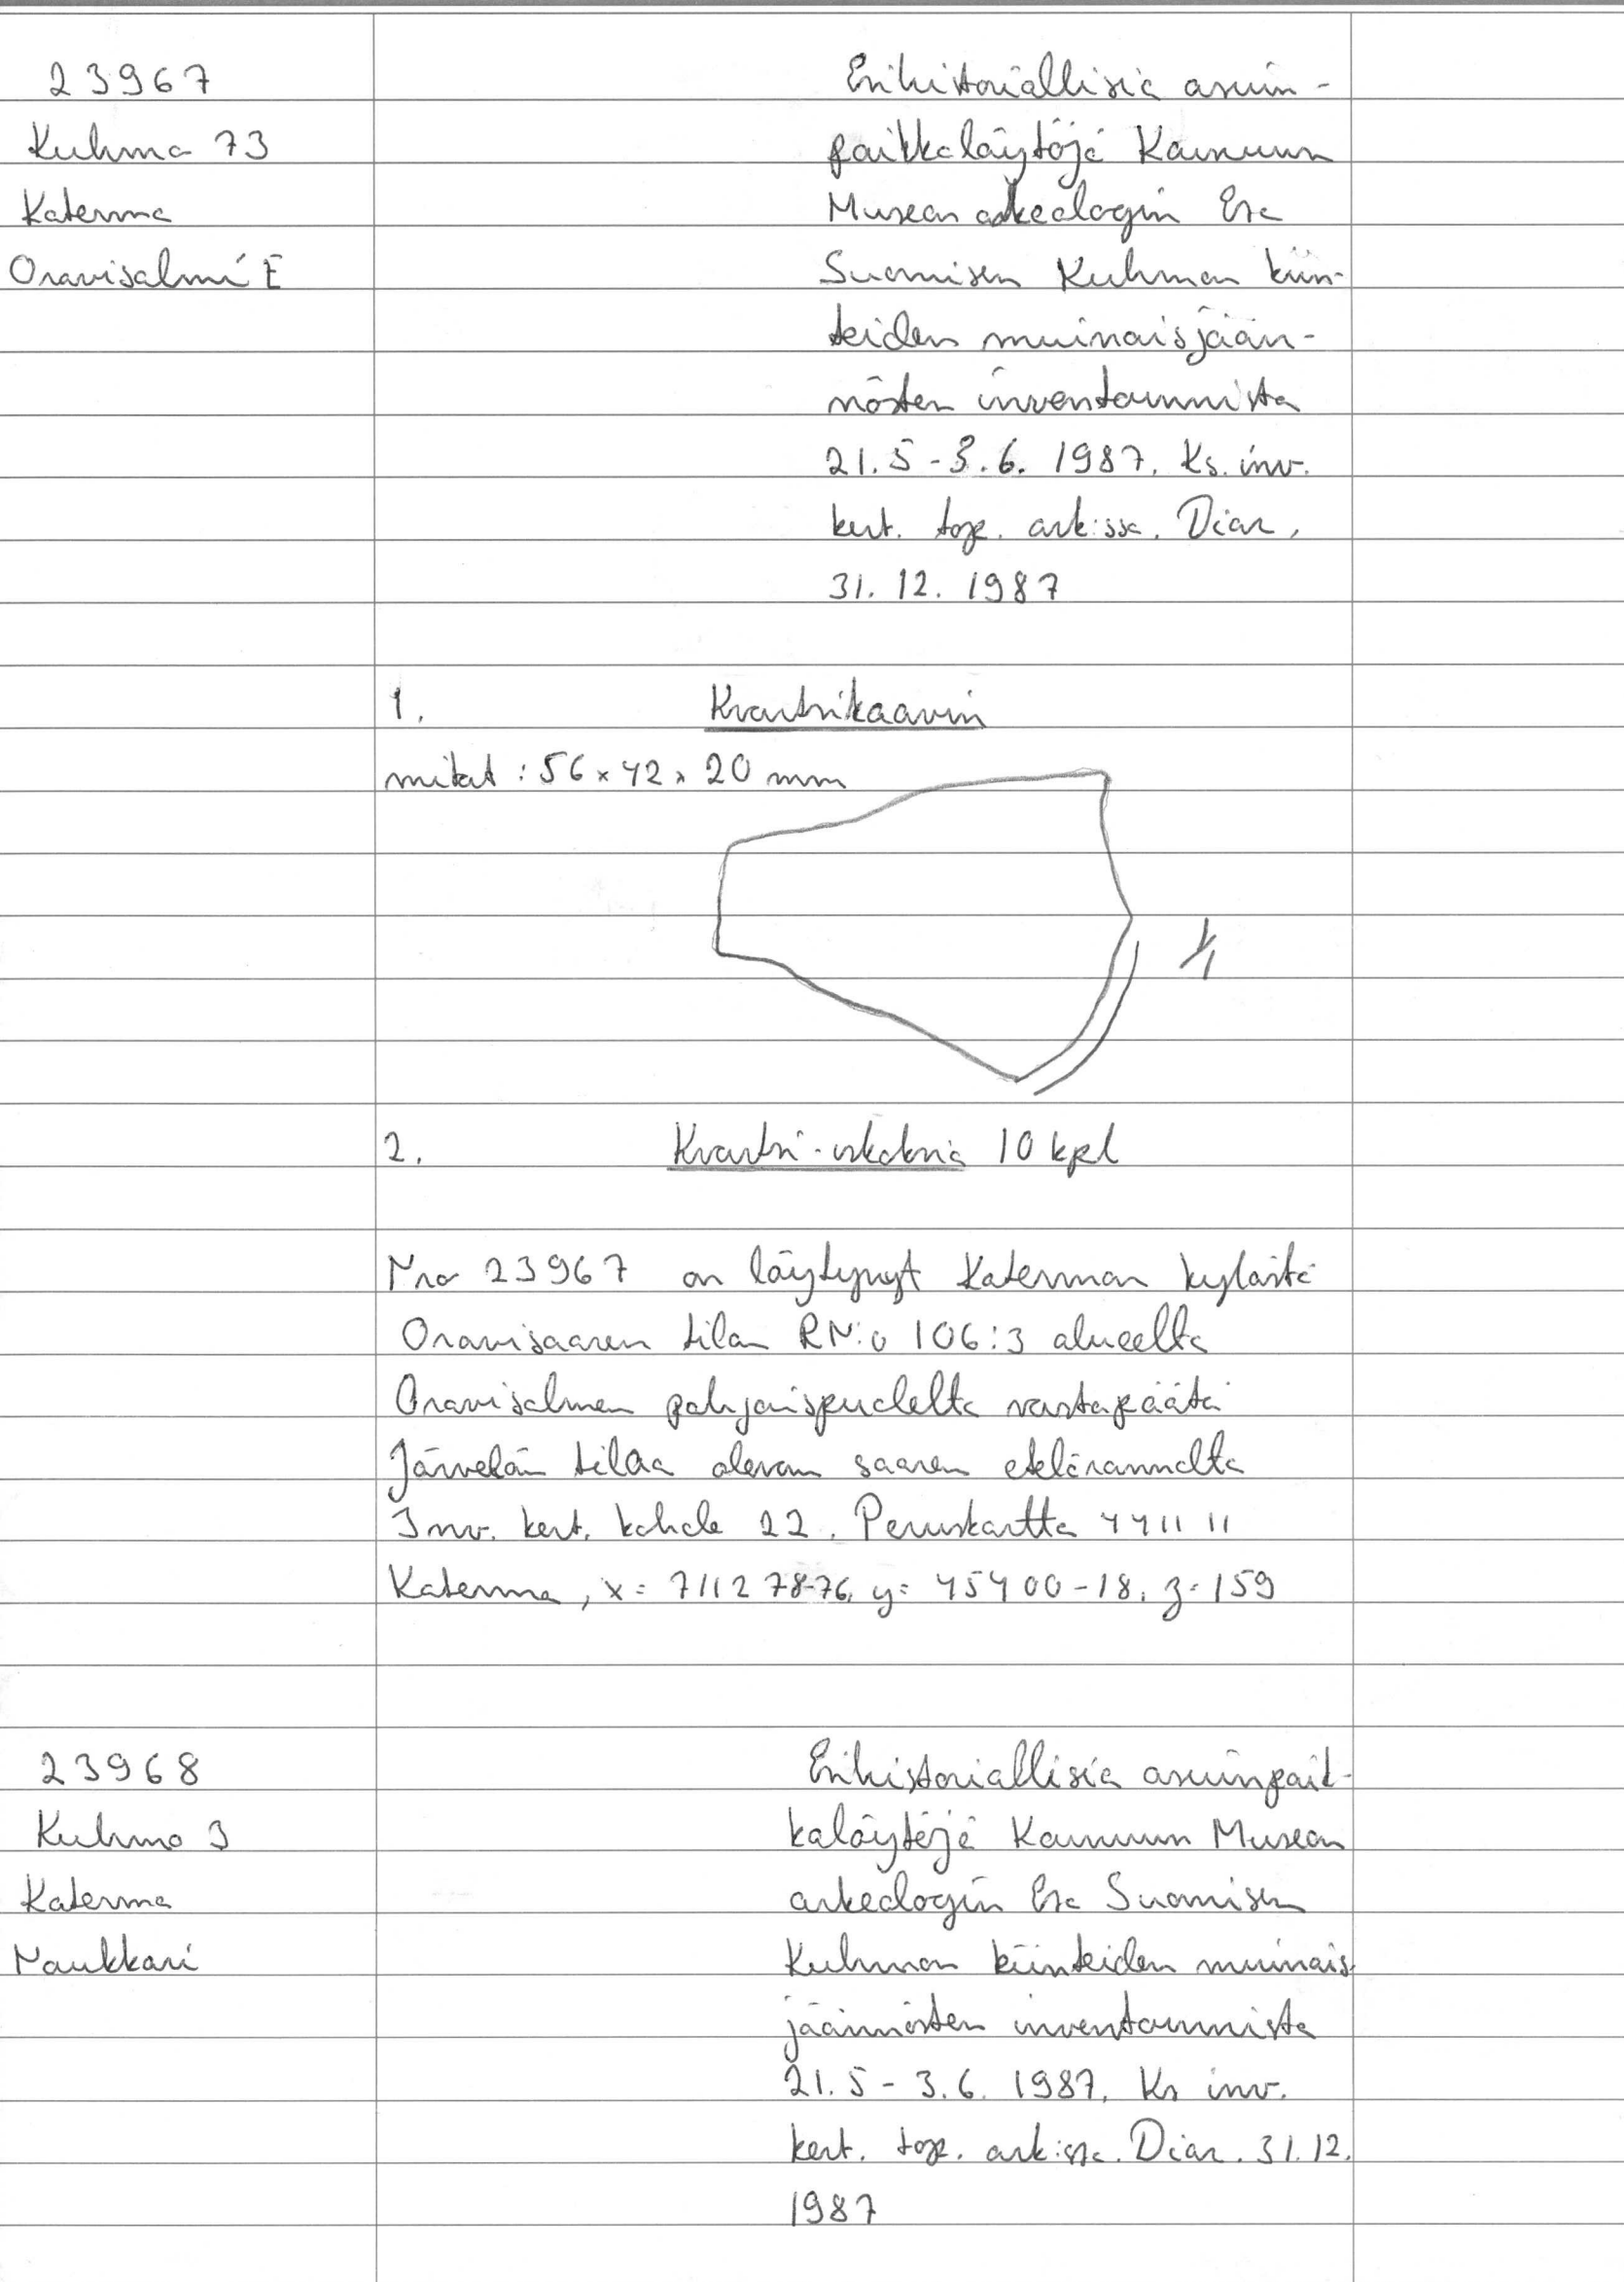 23967
Kuhmo 73
Katerma
Oravisalmi E
Esihistoriallisia asuin-
paikkalöytöjä Kainuun
Museon arkeologin Esa
Suomisen Kuhmon kiin-
teiden muinaisjään-
nösten inventoinnista
21.5 - 3.6. 1987. Ks. inv.
kert. top. ark:ssa. Diar.
31. 12. 1987
1. Kvartsikaavin
mitat : 56 x 42 x 20 mm
1/1
2. Kvartsi-iskoksia 10 kpl
Nro 23967 on löytynyt Katerman kylästä
Oravisaaren tilan RN:o 106:3 alueelta
Oravisalmen pohjoispuolelta vastapäätä
Järvelän tilaa olevan saaren etelärannalta
Inv. kert. kohde 22. Peruskartta 4411 11
Katerma, x= 7112 78-76, y= 454 00-18, z= 159
23968
Kuhmo 3
Katerma
Naukkari
Esihistoriallisia asuinpaik-
kalöytöjä Kainuun Museon
arkeologin Esa Suomisen
Kuhmon kiinteiden muinais-
jäännösten inventoinnista
21.5 - 3.6. 1987. Ks inv.
kert. top. ark:ssa. Diar. 31.12.
1987